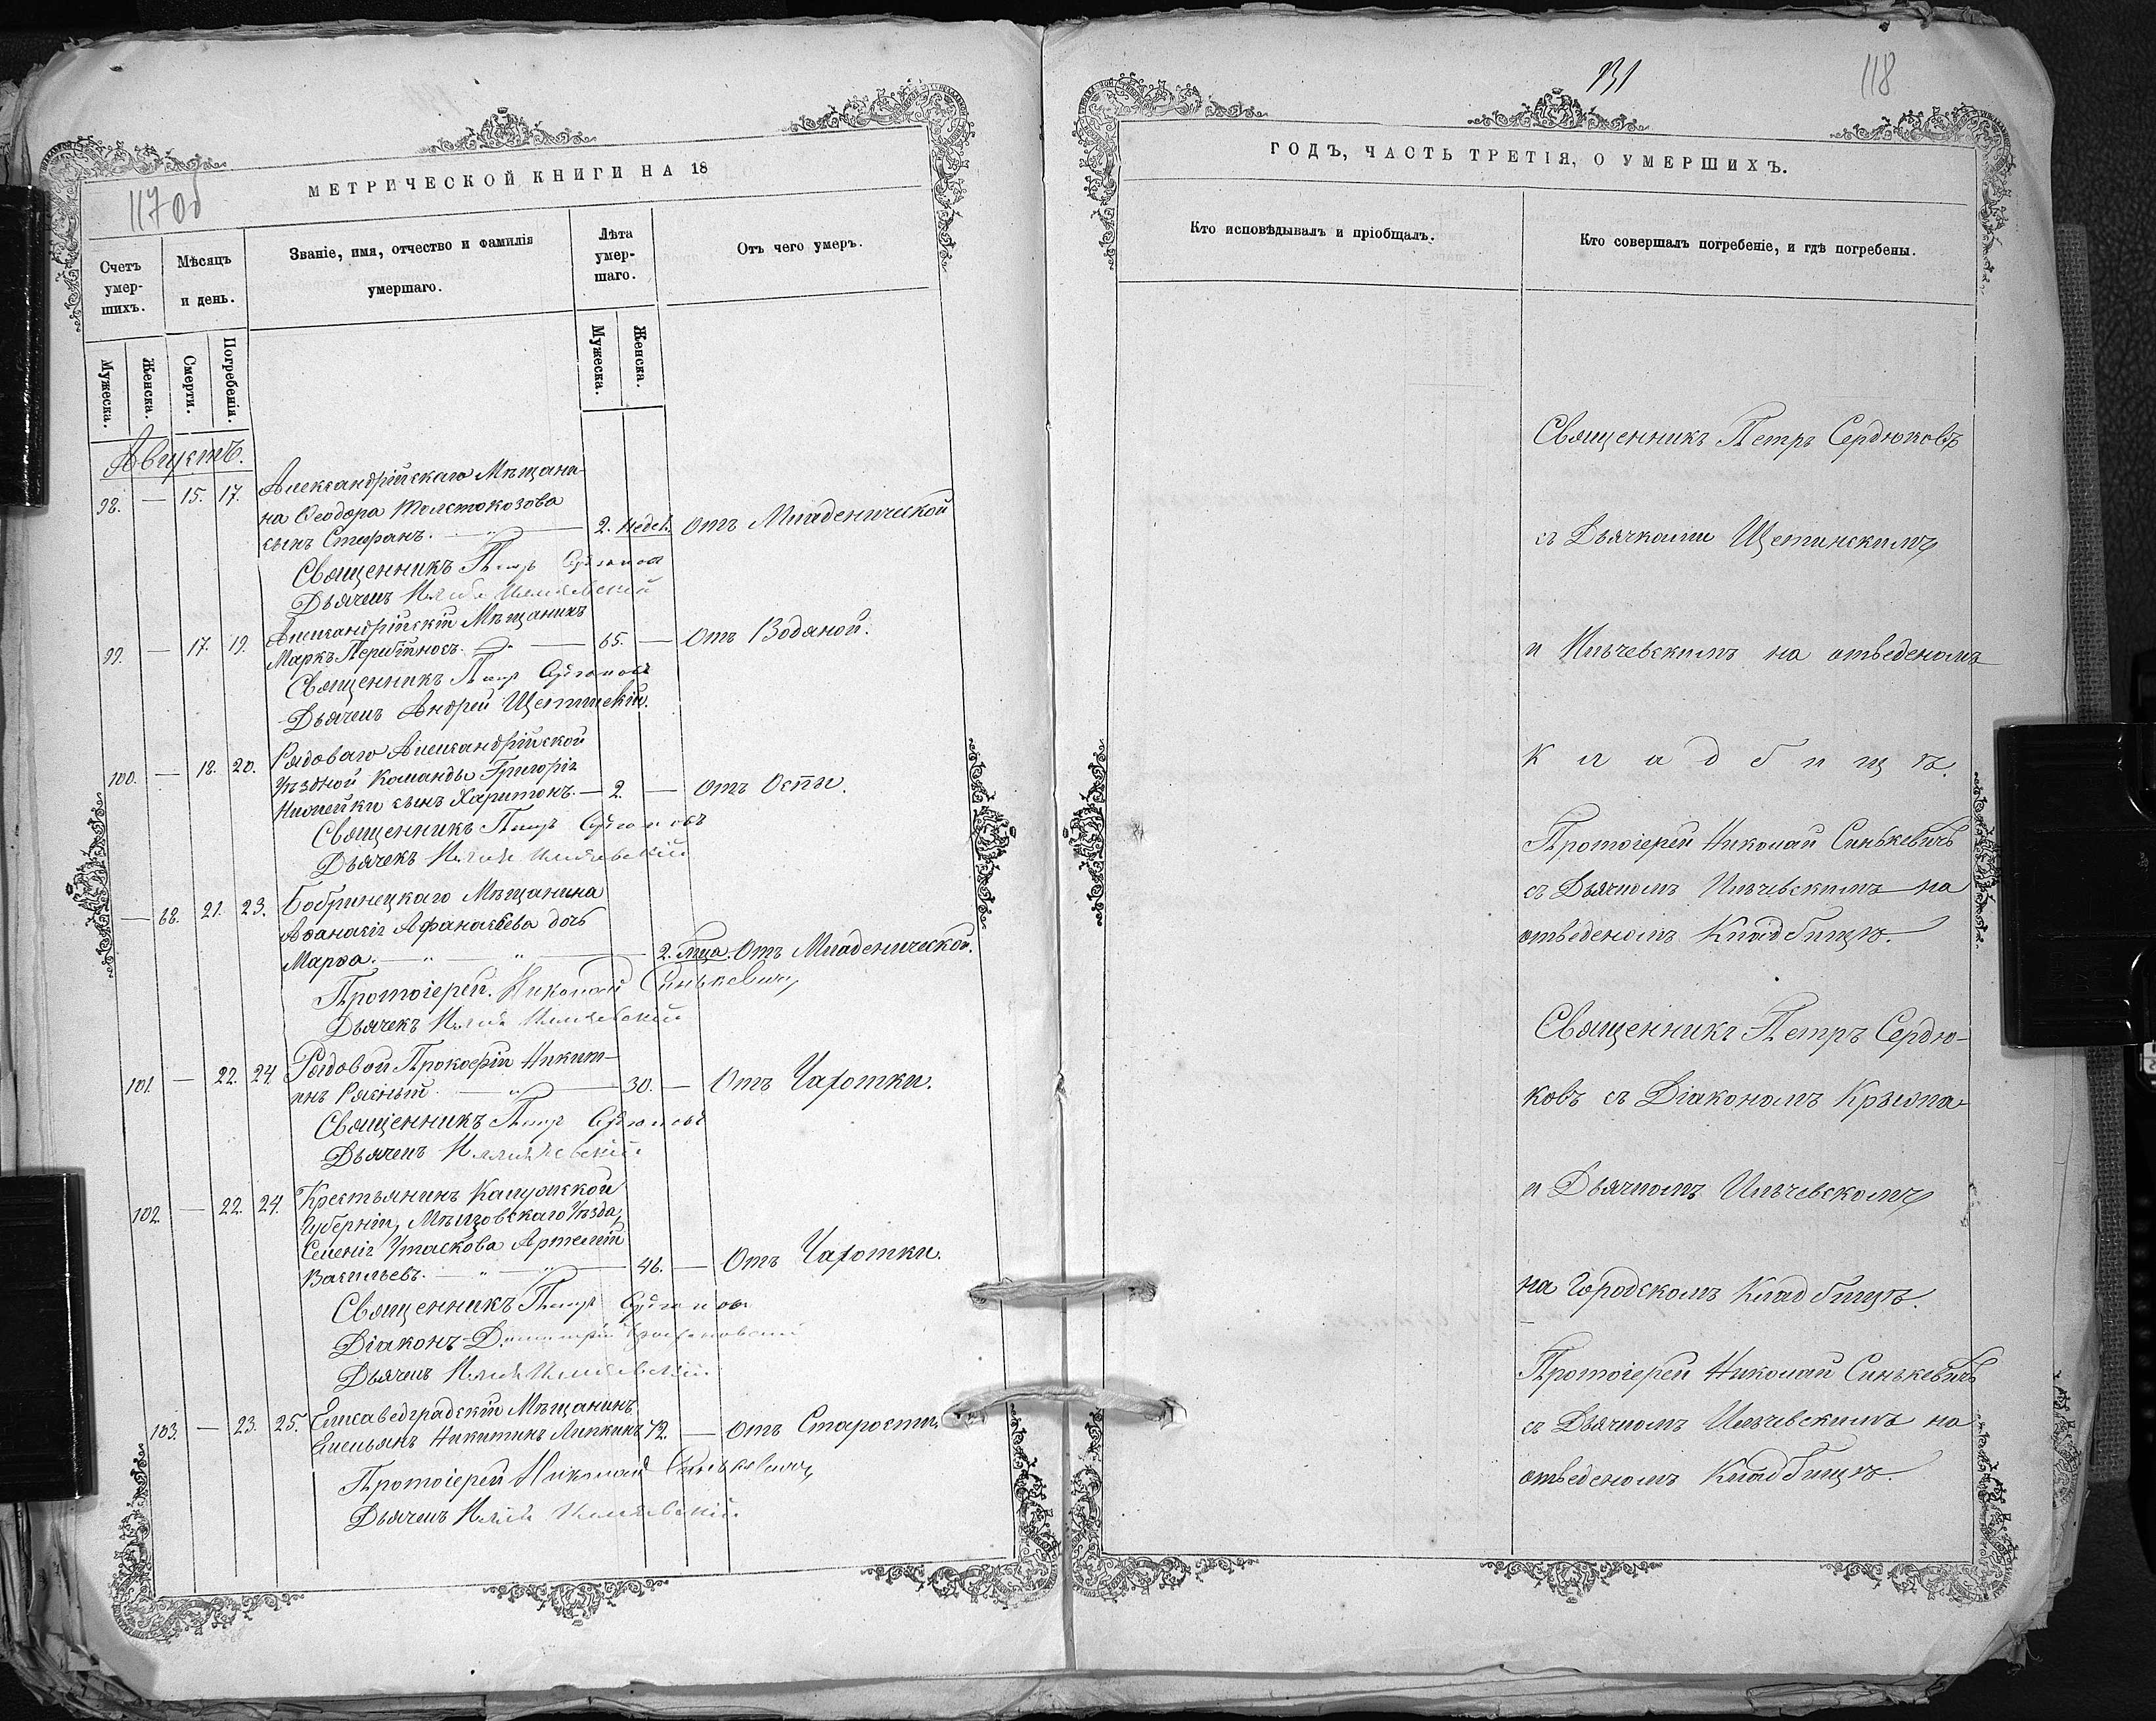 117 об
МЕТРИЧЕСКОЙ КНИГИ НА 18
Счетъ умер-шихъ.
Мѣсяцъ и день.
Званіе, имя, отчество и фамилія умершаго.
Лѣта умер-шаго.
Отъ чего умеръ.
Мужеска.
Женска.
Смерти.
Погребенія.
Мужеска.
Женска.
Августъ.
Александрійскаго Мѣщани-
98. — 15. 17. на Ѳеодора Толстокозова
сынъ Стефанъ. — 2. недѣл. Отъ Младенической
Священникъ Петръ Сердюковъ
Дьячекъ
Александрійскій Мѣщанинъ
99. — 17. 19. Маркъ — 65. — Отъ Водяной.
Священникъ Петръ Сердюковъ
Дьячекъ Андрей Щетинскій.
Рядоваго Александрійской
100. — 18. 20. Уѣздной Команды Григорія
сынъ Харитонъ. — 2. — Отъ Оспы.
Священникъ Петръ Сердюковъ
Дьячекъ
— 68. 21. 23. Бобринецкаго Мѣщанина
Аѳанасія Афанасьева дочь
Марѳа. — 2. мца. Отъ Младенической.
Протоіерей Николай Синькевичъ
Дьячекъ
Рядовой Прокофій Никит-
101. — 22. 24. инъ — 30. — Отъ Чахотки.
Священникъ Петръ Сердюковъ
Дьячекъ
102. — 22. 24. Крестьянинъ Калужской
Губерніи, Мѣщовскаго Уѣзда,
Селенія Артемій
Васильевъ. — 46. — Отъ Чахотки.
Священникъ Петръ Сердюковъ
Діаконъ
Дьячекъ
Елисаведградскій Мѣщанинъ
103. — 23. 25. Емельянъ Никитинъ Липкинъ 72. — Отъ Старости,
Протоіерей Николай Синькевичъ
Дьячекъ
131
118
ГОДЪ, ЧАСТЬ ТРЕТІЯ, О УМЕРШИХЪ.
Кто исповѣдывалъ и пріобщалъ.
Кто совершалъ погребеніе, и гдѣ погребены.
Священникъ Петръ Сердюковъ
съ Дьячками Щетинскимъ
и Ильчевскимъ на отведеномъ
Кладбищѣ.
Протоіерей Николай Синькевичъ
съ Дьячкомъ Ильчевскимъ на
отведеномъ Кладбищѣ.
Священникъ Петръ Сердю-
ковъ съ Діакономъ
и Дьячкомъ Ильчевскомъ
на Городскомъ Кладбищѣ.
Протоіерей Николай Синькевичъ
съ Дьячкомъ Ильчевскимъ на
отведеномъ Кладбищѣ.